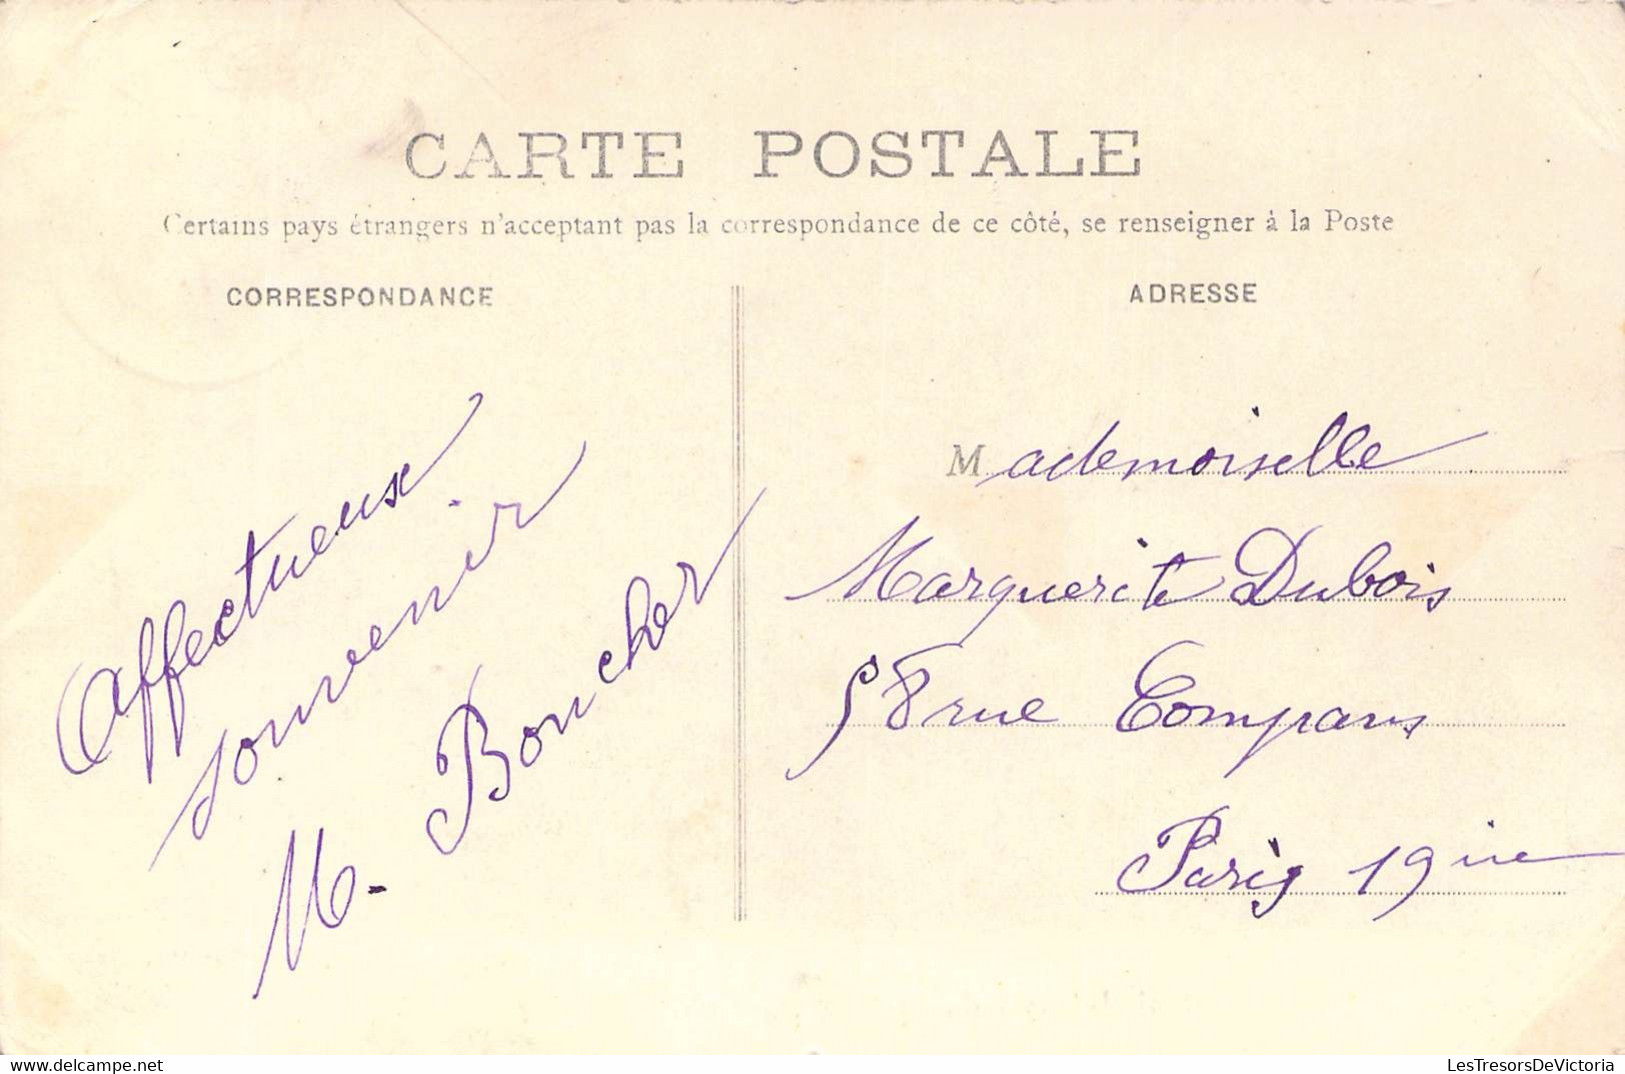 CARTE POSTALE
Certains pays étrangers n'acceptant pas la correspondance de ce côté, se renseigner à la Poste
CORRESPONDANCE
Affectueux
souvenir
M. Boucher
ADRESSE
Mademoiselle
Marguerite Dubois
58 rue Compans
Paris 19ème
delcampe.net
LesTresorsDeVictoria